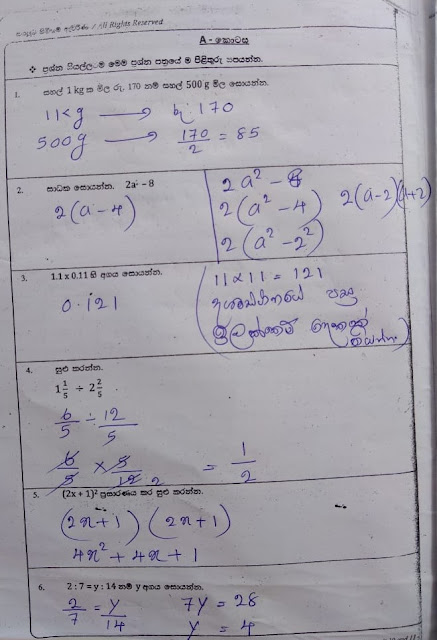 සියලුම හිමිකම් ඇවිරිණි / All Rights Reserved
A - කොටස
❖ ප්‍රශ්න සියල්ලටම මෙම ප්‍රශ්න පත්‍රයේ ම පිළිතුරු සපයන්න.
1. සහල් 1 kg ක මිල රු. 170 නම් සහල් 500 g මිල සොයන්න.
1kg → රු 170
500g → 170/2 = 85
2. සාධක සොයන්න. 2a² - 8
2(a - 4)
2a² - 8
2(a² - 4) 2(a-2)(a+2)
2(a² - 2²)
3. 1.1 x 0.11 හි අගය සොයන්න.
0.121
(11 × 11 = 121
දශමස්ථානයේ පසු
ඉලක්කම්
තියන්න)
4. සුළු කරන්න.
1 1/5 ÷ 2 2/5
6/5 ÷ 12/5
6/5 × 5/12 2 = 1/2
5. (2x + 1)² ප්‍රසාරණය කර සුළු කරන්න.
(2x+1) (2x+1)
4x² + 4x + 1
6. 2 : 7 = y : 14 නම් y අගය සොයන්න.
2/7 = y/14 7y = 28
y = 4